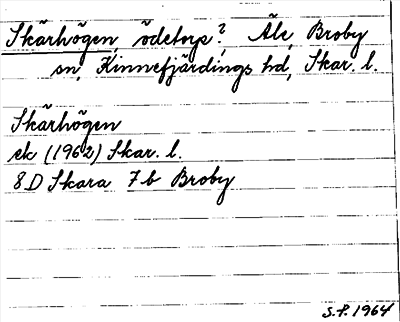 Skärhögen, ödetorp?, Äle, Broby
sn, Kinnefjärdings hd, Skar. l.
Skärhögen
ek (1962) Skar. l.
8D Skara 7b Broby
S.P. 1964